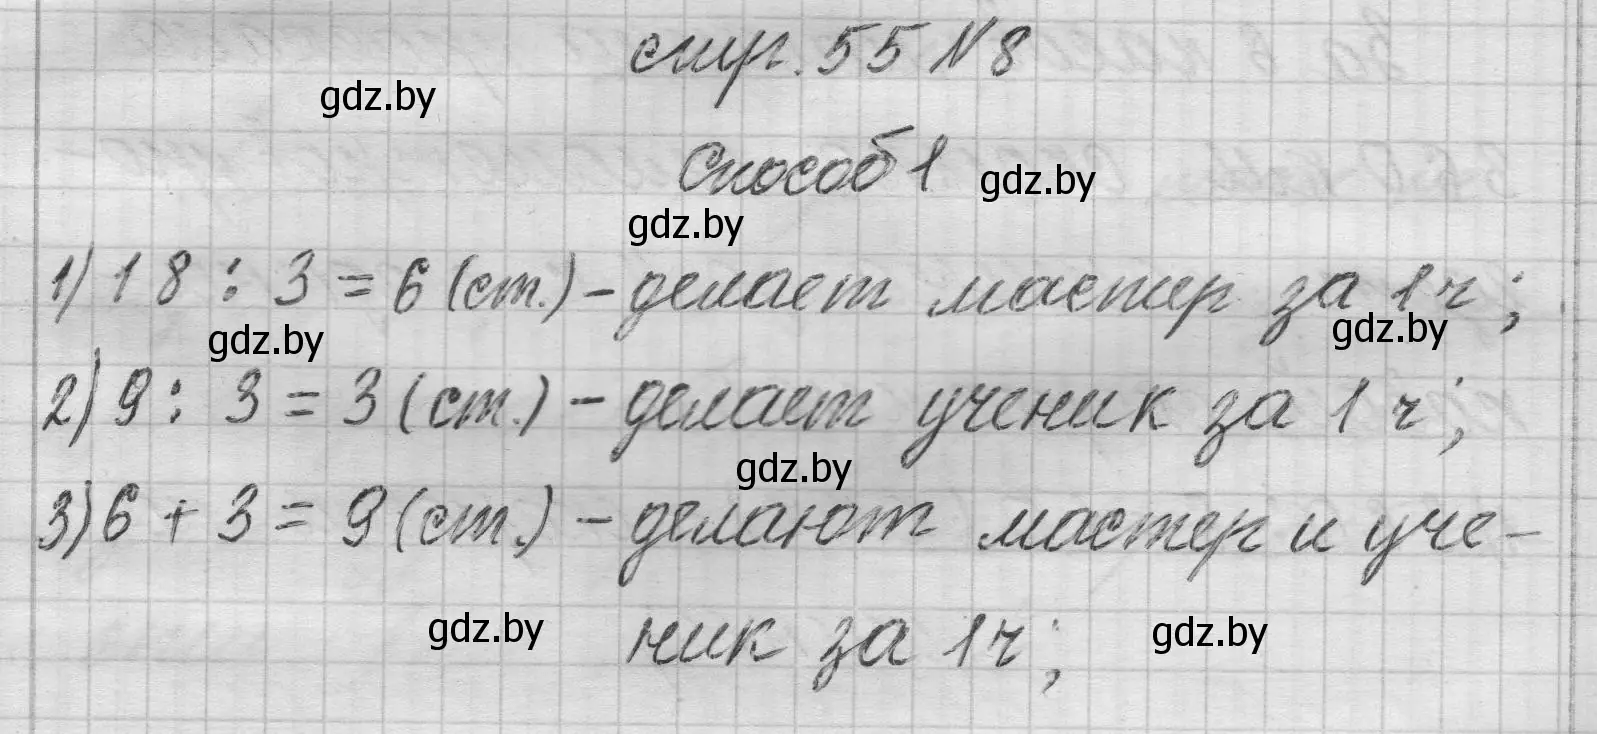 стр. 55 N 8
gdz.by
Способ 1
gdz.by
gdz.by
1) 18 : 3 = 6 (ст.) - делает мастер за 1 ч;
gdz.by
gdz.by
2) 9 : 3 = 3 (ст.) - делает ученик за 1 ч;
gdz.by
3) 6 + 3 = 9 (ст.) - делают мастер и уче-
gdz.by
ник за 1 ч;
gdz.by